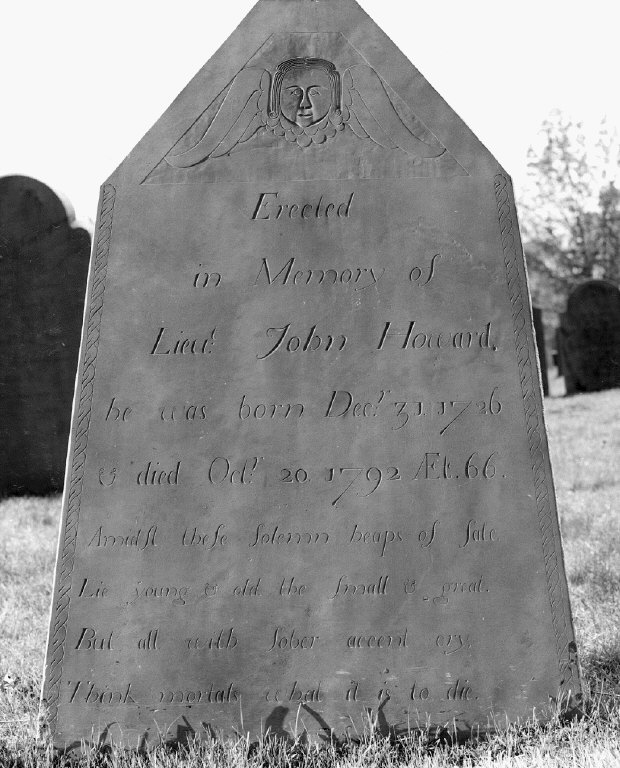 Erected
in Memory of
Lieut. John Howard,
he was born Decr. 31. 1726
& died Octr. 20. 1792 Æt. 66.
Amidſt theſe ſolemn heaps of fate
Lie young & old the ſmall & great.
But all with ſober accent cry,
Think mortals what it is to die.